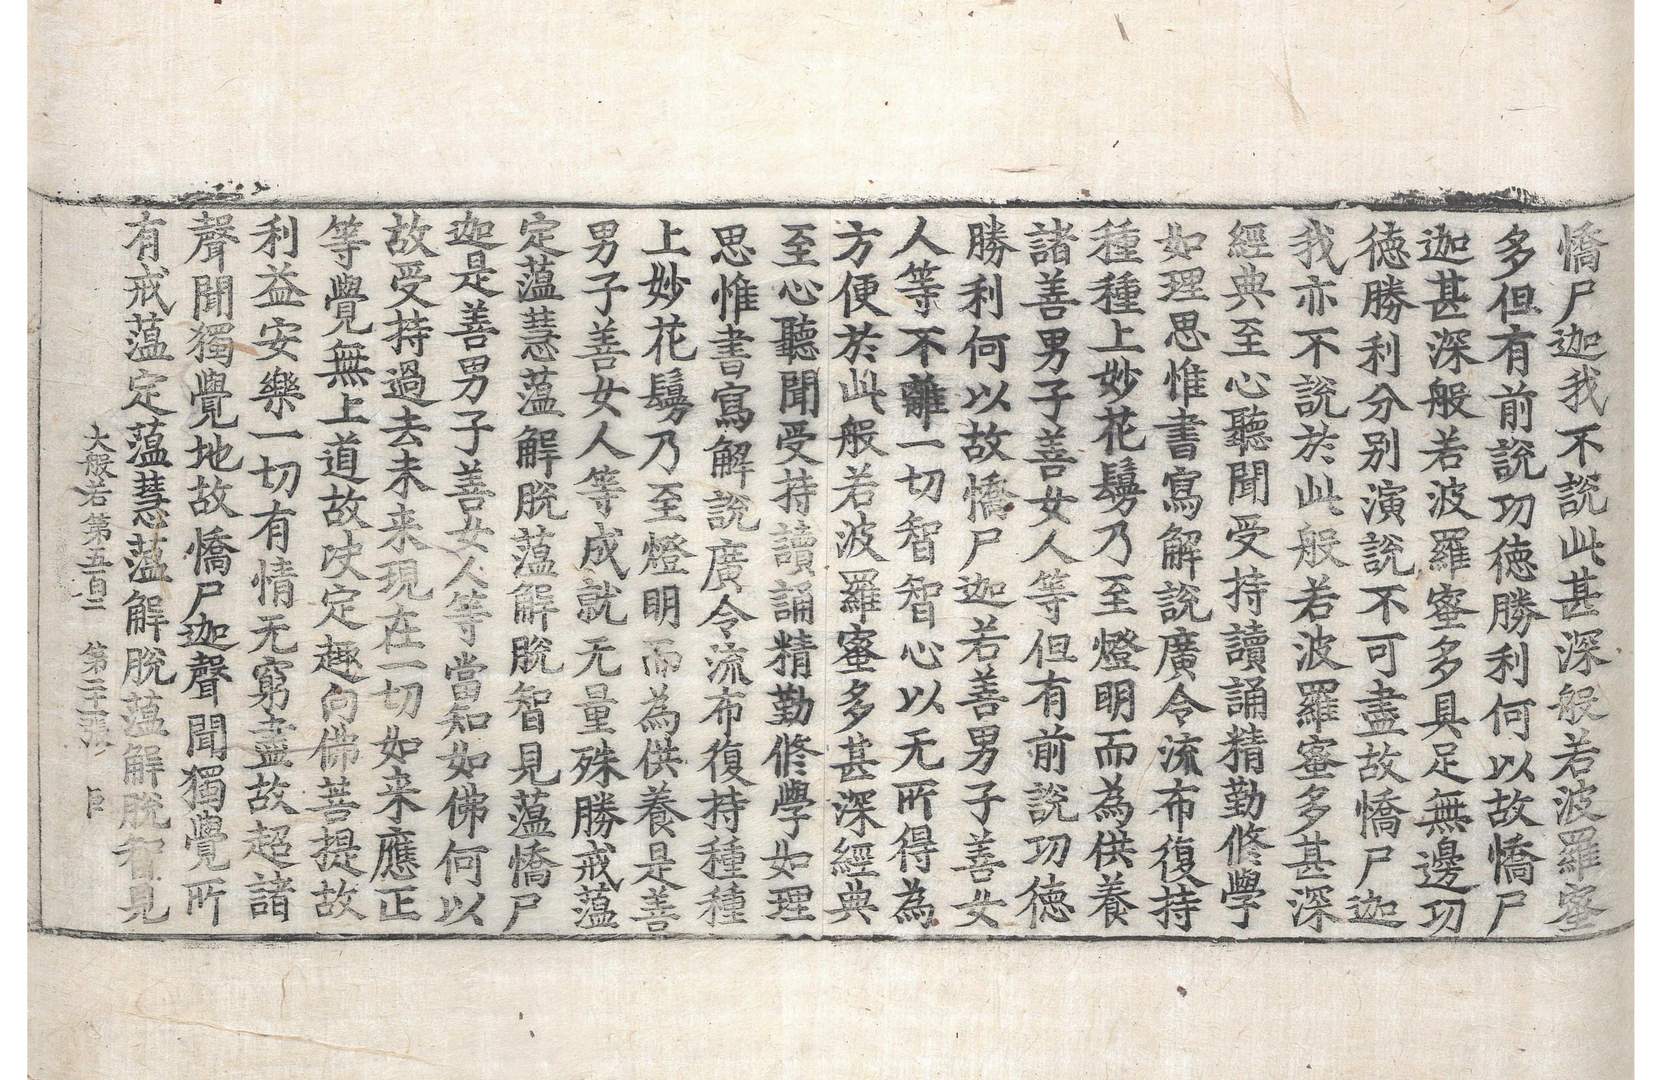 憍尸迦我不說此甚深般若波羅蜜
多但有前說功徳勝利何以故憍尸
迦甚深般若波羅蜜多具足無邊功
徳勝利分别演說不可盡故憍尸迦
我亦不說於此般若波羅蜜多甚深
經典至心聽聞受持讀誦精勤修學
如理思惟書寫解說廣令流布復持
種種上妙花鬘乃至燈明而為供養
諸善男子善女人等但有前說功徳
勝利何以故憍尸迦若善男子善女
人等不離一切智智心以无所得為
方便於此般若波羅蜜多甚深經典
至心聽聞受持讀誦精勤修學如理
思惟書寫解說廣令流布復持種種
上妙花鬘乃至燈明而為供養是善
男子善女人等成就无量殊勝戒蕰
定蕰慧蕰解脫蕰解脫智見蕰憍尸
迦是善男子善女人等當知如佛何以
故受持過去未来現在一切如来應正
等覺無上道故决定趣向佛菩提故
利益安樂一切有情无窮盡故超諸
聲聞獨覺地故憍尸迦聲聞獨覺所
有戒蕰定蕰慧蕰解脫蕰解脫智見
大般若第五百二 第二十張 臣